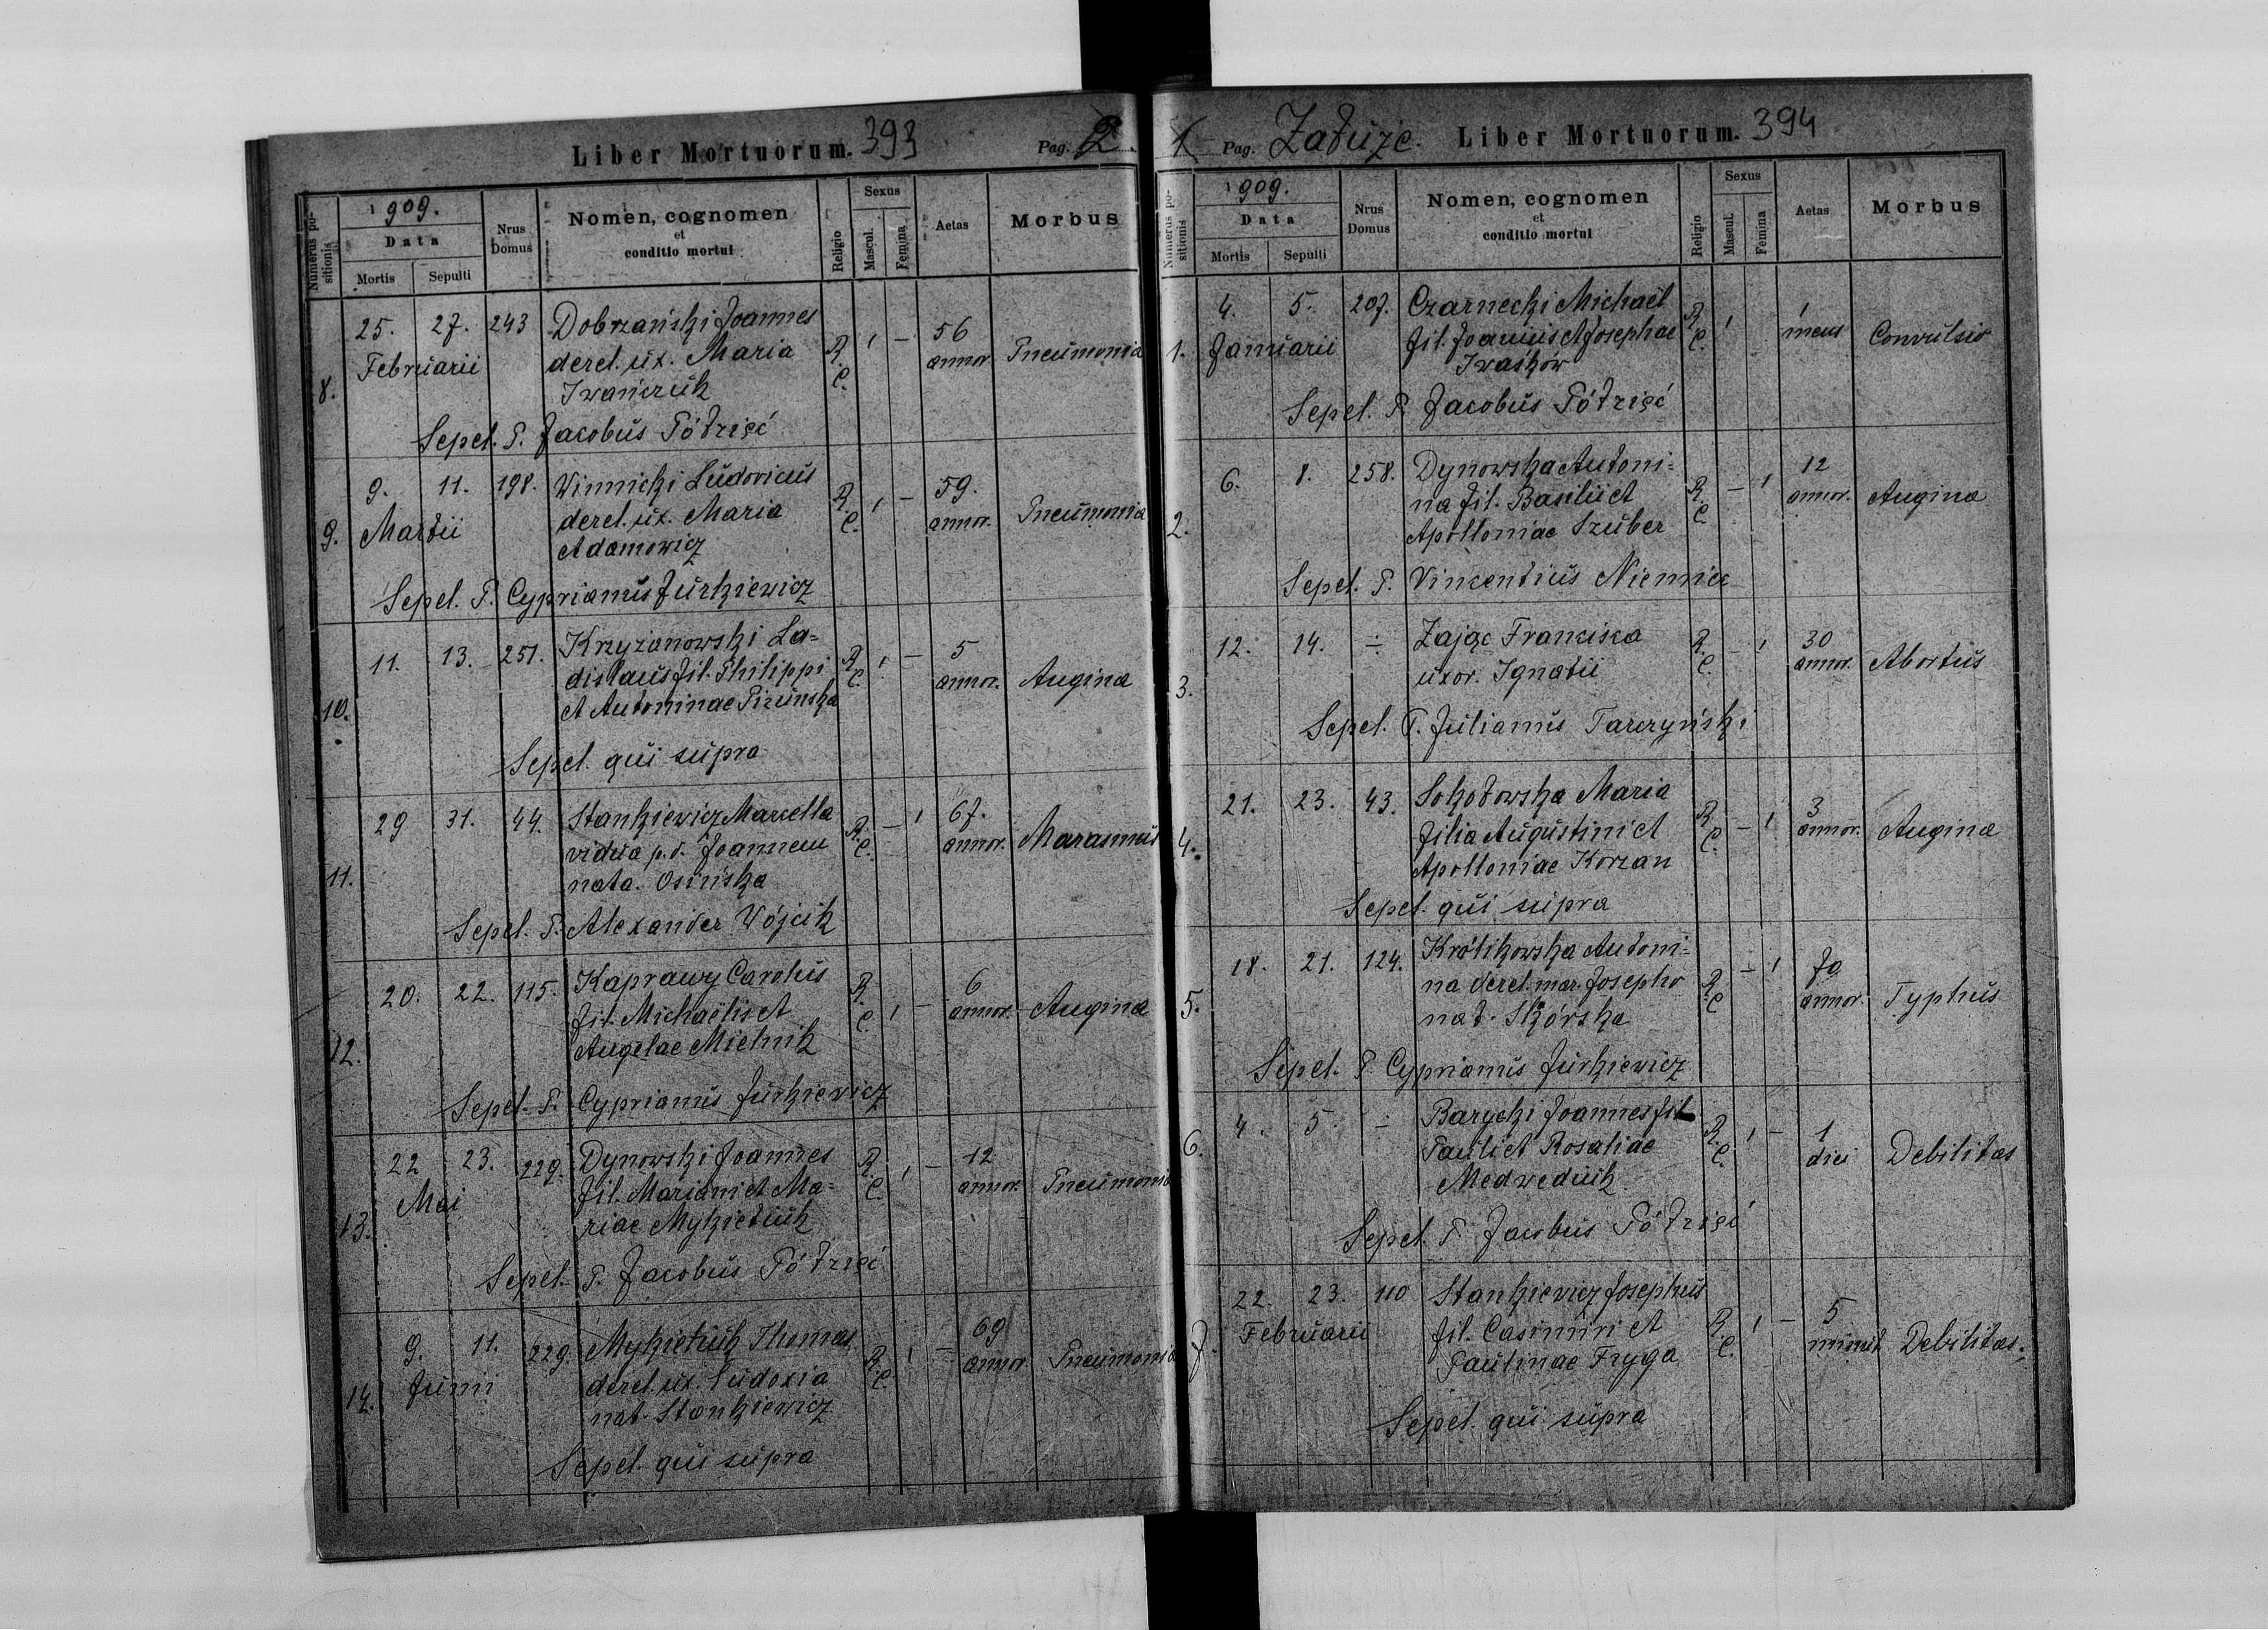 Liber Mortuorum. 393 Pag. 2.
Numerus positionis
1909.
Data
Mortis Sepulti
Nrus Domus
Nomen, cognomen
et
conditio mortui
Religio
Sexus
Mascul. Femina
Aetas
Morbus
8. 25. 27. 243 Dobrzański Joannes R. C. 1 – 56 annor. Pneumonia
Februarii derel. ux. Maria
Iwańczuk
Sepel. P. Jacobus Półzięć
9. 9. 11. 198. Winnicki Ludovicus R. C. 1 – 59. annor. Pneumonia
Martii derel. ux. Maria
Adamowicz
Sepel. P. Cyprianus Jurkiewicz
10. 11. 13. 251. Krzyżanowski La= R. C. 1 – 5 annor. Angina
dislaus fil. Philippi
et Antoninae Pizuńska
Sepel. qui supra
11. 29 31. 44. Stankiewicz Marcella R. C. – 1 67. annor. Marasmus
vidua p. d. Joannem
nata. Osińska
Sepel. P. Alexander Wójcik
12. 20. 22. 115. Kaprawy Carolus R. C. 1 – 6 annor. Angina
fil. Michaëlis et
Angelae Mielnik
Sepel. P. Cyprianus Jurkiewicz
13. 22 23. 229. Dynowski Joannes R. C. 1 – 12 annor. Pneumonia
Mai fil. Mariani et Ma=
riae Mykietiuk
Sepel. P. Jacobus Półzięć
14. 9. 11. 229. Mykietiuk Thomas R. C. 1 – 69 annor. Pneumonia
Junii derel. ux. Eudoxia
nat. Stankiewicz
Sepel. qui supra
1 Pag. Załuże. Liber Mortuorum. 394
Numerus positionis
1909.
Data
Mortis Sepulti
Nrus Domus
Nomen, cognomen
et
conditio mortui
Religio
Sexus
Mascul. Femina
Aetas
Morbus
1. 4. 5. 207. Czarnecki Michaël R. C. 1 1 mens Convulsio
Januarii fil. Joannis et Josephae
Iwaśków
Sepel. P. Jacobus Półzięć
2. 6. 8. 258. Dynowska Antoni= R. C. – 1 12 annor. Angina
na fil. Basilii et
Apolloniae Szuber
Sepel. P. Vincentius Niemiec
3. 12. 14. ÷ Zając Francisca R. C. – 1 30 annor. Abortus
uxor. Ignatii
Sepel. P. Julianus Tarczyński
4. 21. 23. 43. Sokołowska Maria R. C. – 1 3 annor. Angina
filia Augustini et
Apolloniae Korzan
Sepel. qui supra
5. 18. 21. 124. Królikowska Antoni= R. C. – 1 70 annor. Typhus
na derel. mar. Josepho
nat. Skórska
Sepel. P. Cyprianus Jurkiewicz
6. 4. 5. ÷ Barycki Joannes fil R. C. 1 – 1 diei Debilitas
Pauli et Rosaliae
Medwediuk
Sepel. P. Jacobus Półzięć
7. 22. 23. 110 Stankiewicz Josephus R. C. 1 – 5 minut. Debilitas.
Februarii fil. Casimiri et
Paulinae Fryga
Sepel. qui supra